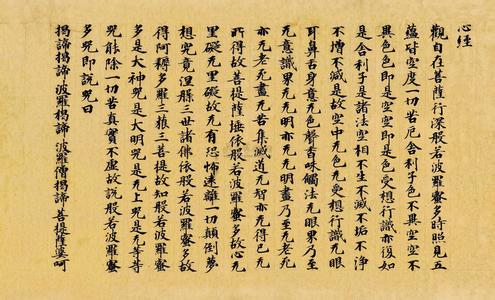 心経
觀自在菩薩行深般若波羅蜜多時照見五
蘊皆空度一切苦厄舍利子色不異空空不
異色色即是空空即是色受想行識亦復如
是舍利子是諸法空相不生不滅不垢不淨
不增不減是故空中无色无受想行識无眼
耳鼻舌身意无色聲香味觸法无眼界乃至
无意識界无无明亦无无明盡乃至无老死
亦无老死盡无苦集滅道无智亦无得已无
所得故菩提薩埵依般若波羅蜜多故心无
罣礙无罣礙故无有恐怖遠離一切顛倒夢
想究竟涅槃三世諸佛依般若波羅蜜多故
得阿耨多羅三藐三菩提故知般若波羅蜜
多是大神咒是大明咒是无上咒是无等等
咒能除一切苦真實不虛故說般若波羅蜜
多咒即說咒曰
揭諦揭諦 波羅揭諦 波羅僧揭諦 菩提薩呵